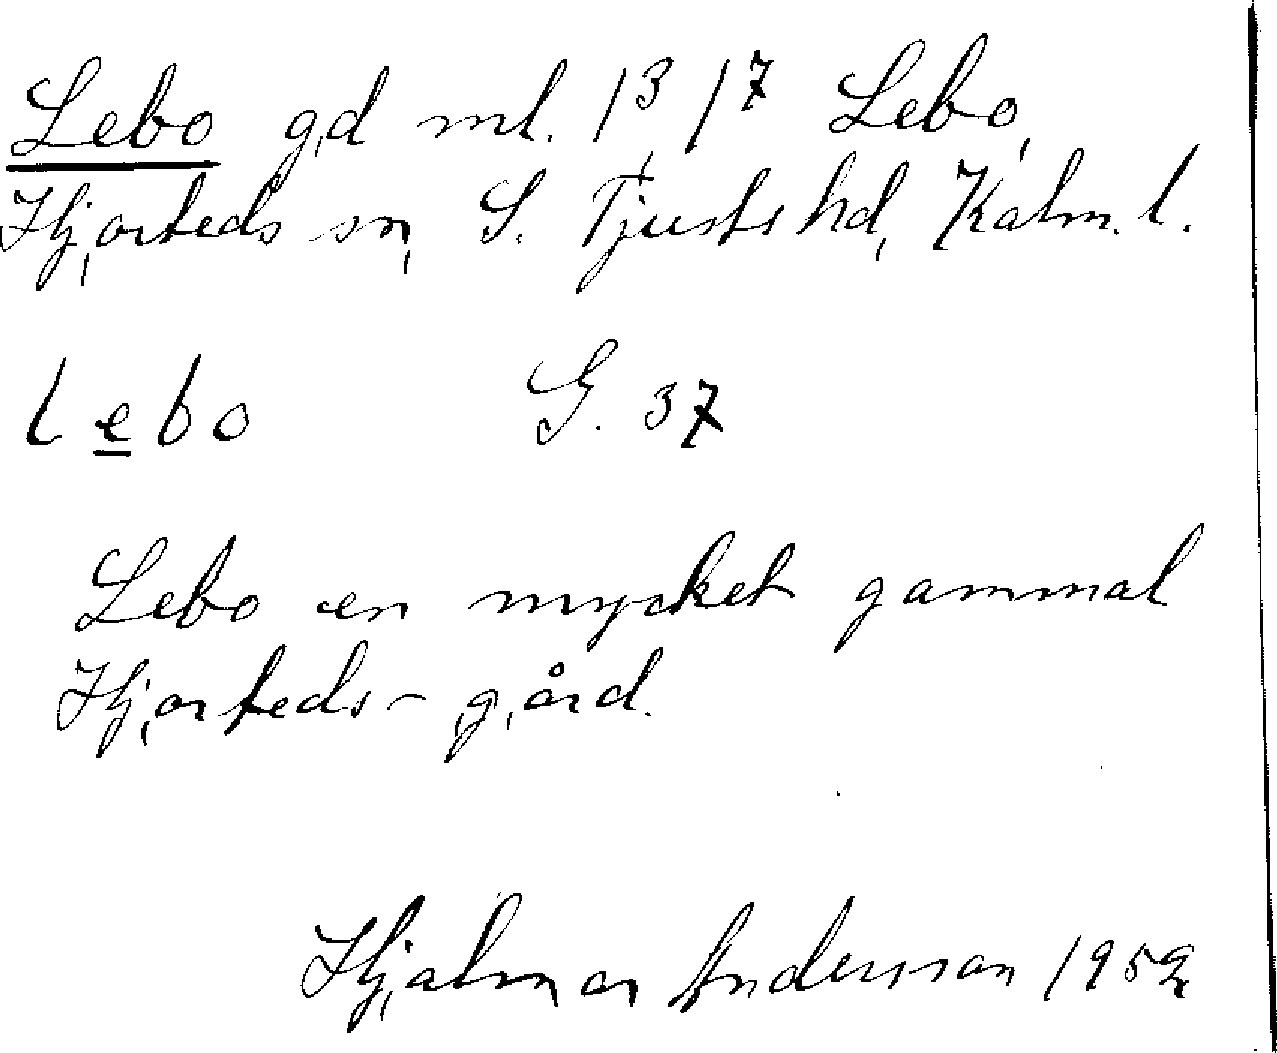 Lebo gd ml. 13/7 Lebo,
Hjorteds sn, S. Tjusts hd, Kalm. l.
lebo G. 37
Lebo en mycket gammal
Hjorteds-gård.
Hjalmar Andersson 1952